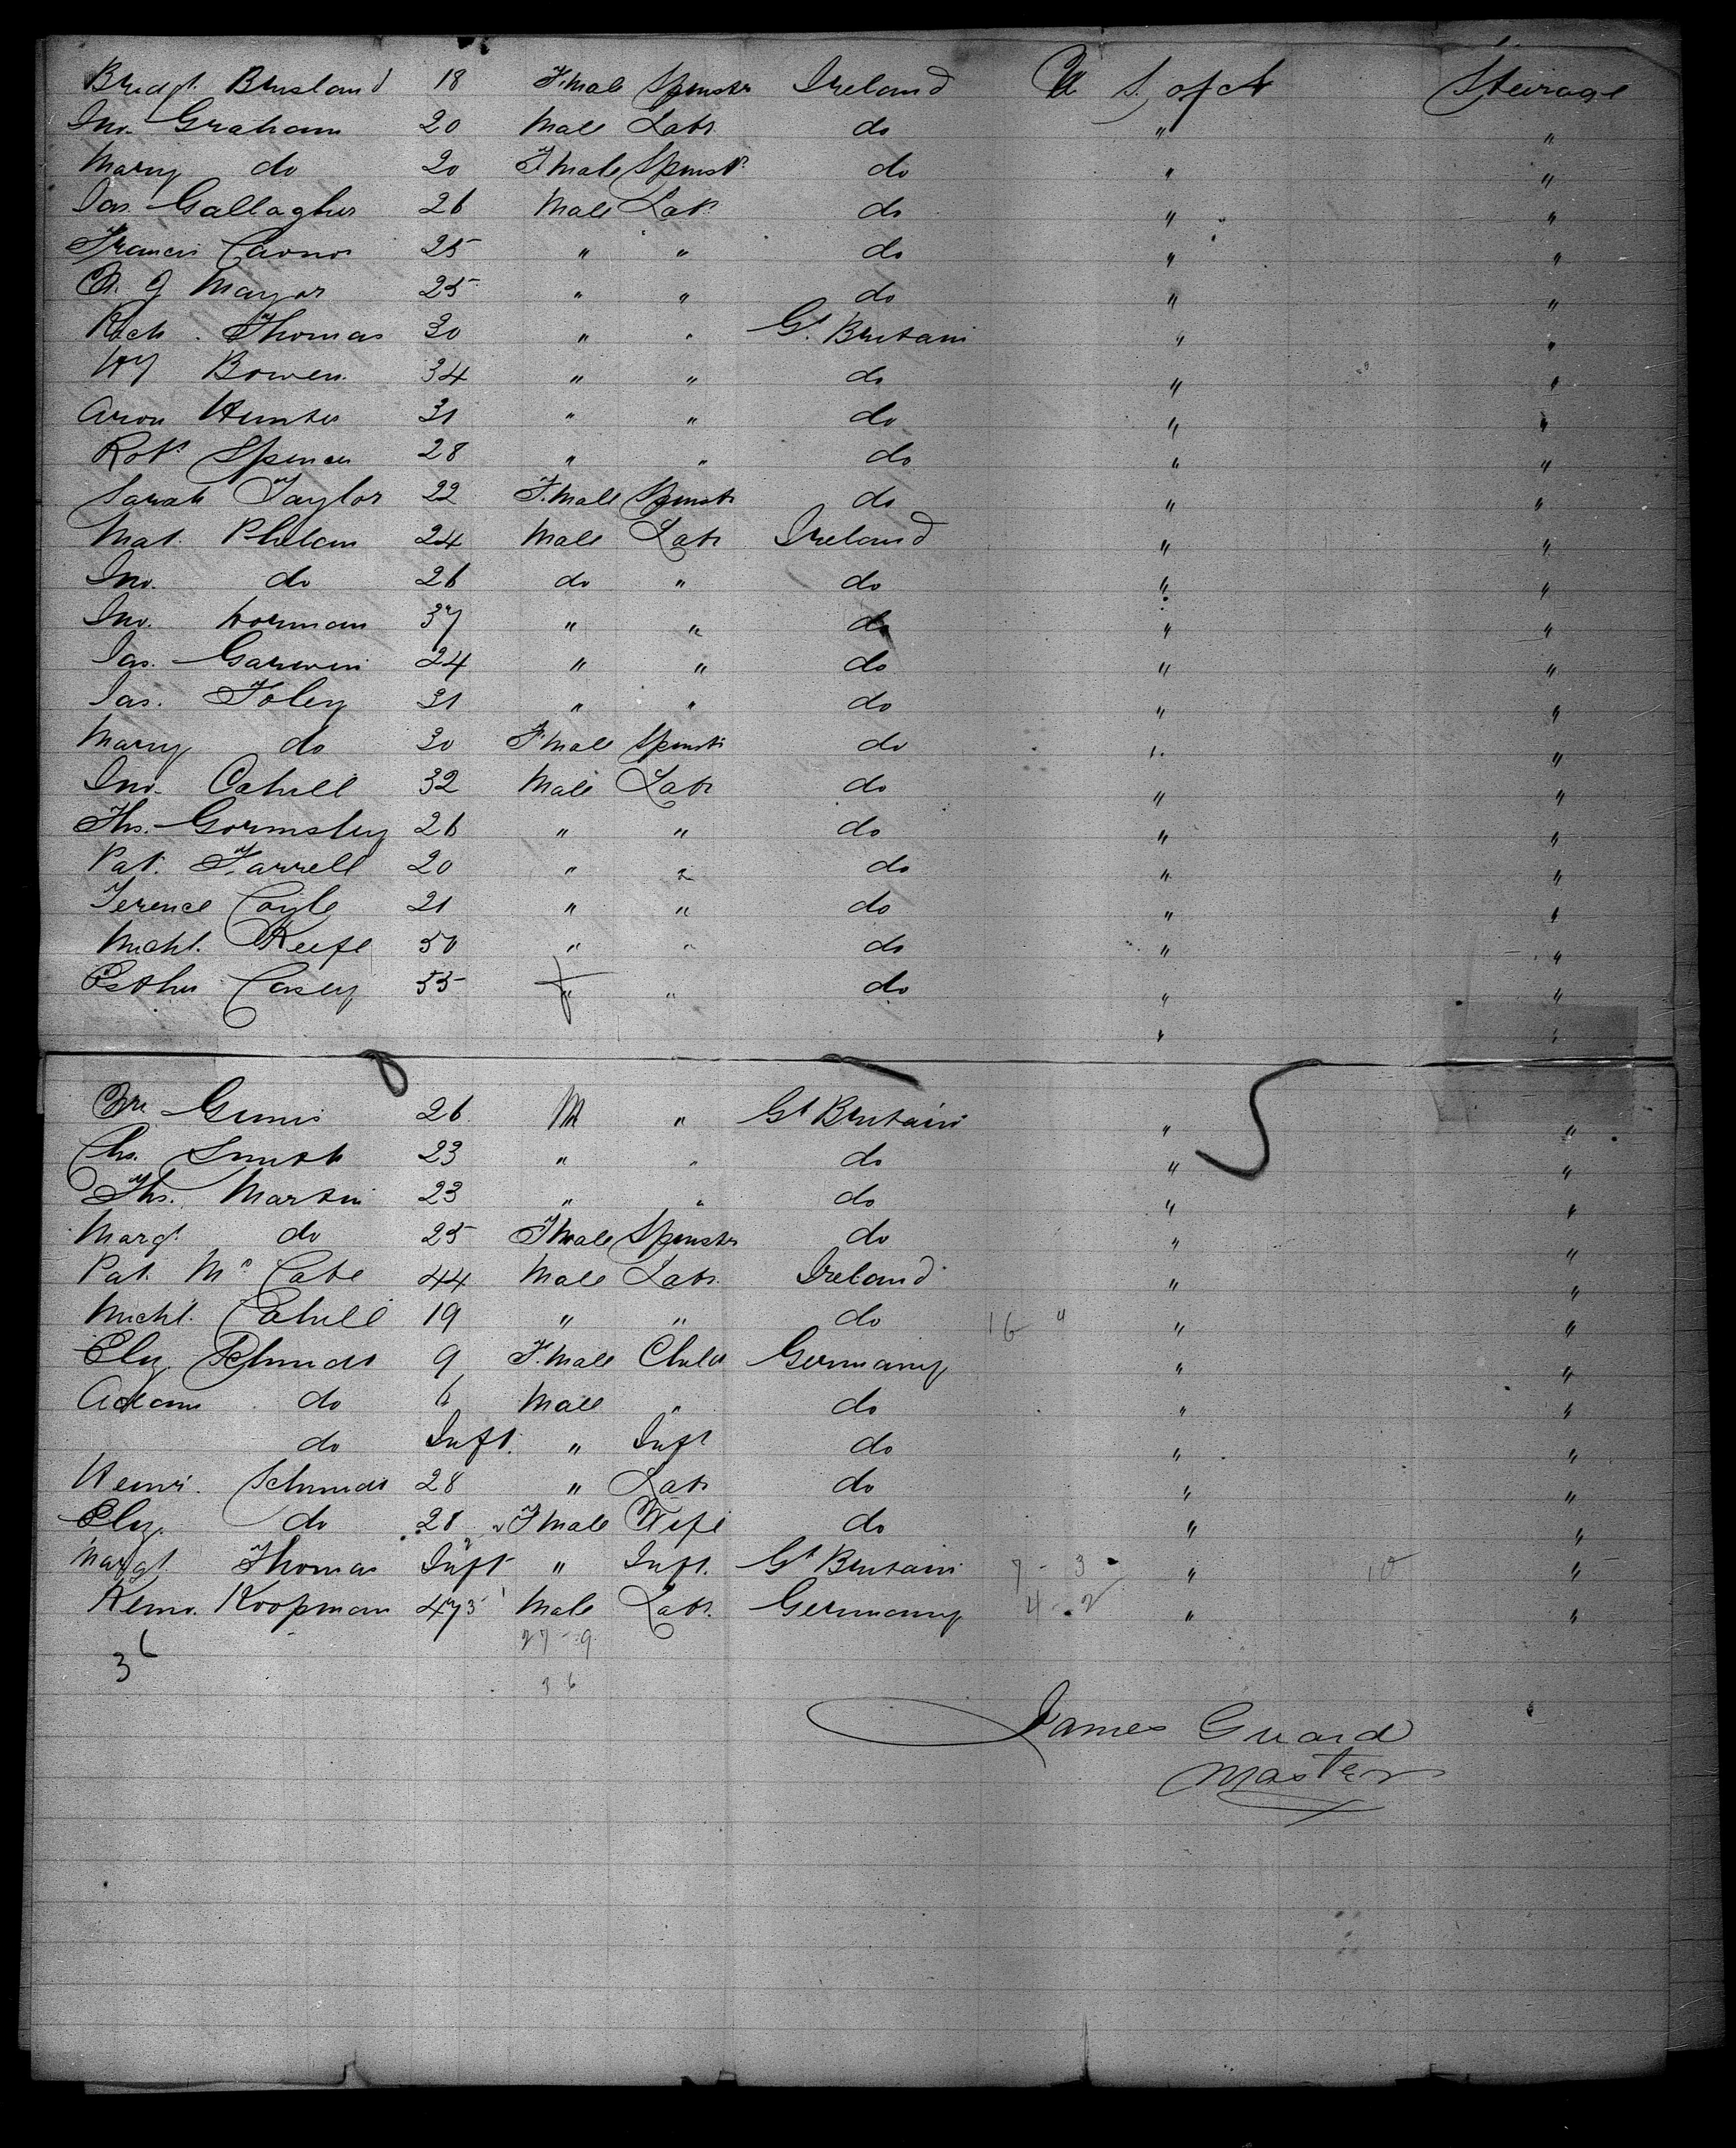 Bridgt. Brusland 18 F.male Spinstr Ireland U S. of A Steirage
Jno. Graham 20 Male Labr do " "
Mary do 20 F.male Spinstr do " "
Jas. Gallagher 26 Male Labr do " "
Francis 25 " " do " "
Mayor 25 " " do " "
Rich. Thomas 30 " " Gt. Britain " "
Wm Bowen 34 " " do " "
Aron Hunter 31 " " do " "
Robt Spencer 28 " " do " "
Sarah Taylor 22 F.male Spinstr do " "
Mat. Phelan 24 Male Labr Ireland " "
Jno. do 26 do " do " "
Jno. 37 " " do " "
Jas. Garwin 24 " " do " "
Jas. Foley 31 " " do " "
Mary do 30 F.male Spinstr do " "
Jno. Cahill 32 Male Labr do " "
Ths. Gormsley 26 " " do " "
Pat. Farrell 20 " " do " "
Terence Coyle 21 " " do " "
Michl. Keefe 50 " " do " "
Esther Casey 55 f " do " "
" "
26 M " Gt Britain " "
Chs. Smith 23 " " do " "
Ths. Martin 23 " " do " "
Margt. do 25 F.male Spinstr do " "
Pat. Mc Cabe 44 Male Labr. Ireland " "
Michl. Cahill 19 " " do 16 " " "
Eliz. Schmidt 9 F.male Child Germany " "
Adam do 6 Male " do " "
do Inft. " Inft do " "
Heinr. Schmidt 28 " Labr do " "
Eliz. do 28 F.male Wife do " "
Margt. Thomas Inft " Inft. Gt Britain 7 - 3 " 10 "
Henr. Koopman 47 Male Labr. Germany 4 - 2 " "
36 27 - 9
36
James Guard
Master